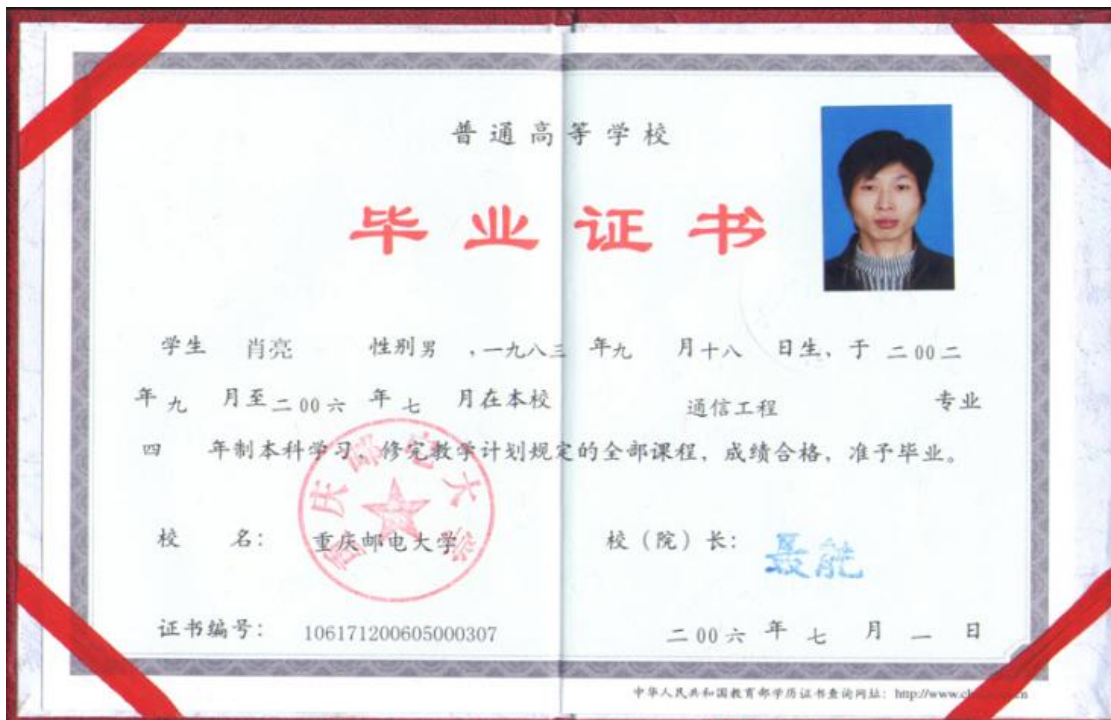 普通高等学校
毕业证书
学生 肖亮 性别 男 ，一九八三 年 九 月 十八 日生、于 二00二
年 九 月至 二00六 年 七 月在本校 通信工程 专业
四 年制本科学习，修完教学计划规定的全部课程，成绩合格，准予毕业。
重庆邮电大学
校 名： 重庆邮电大学 校（院）长：
证书编号： 106171200605000307 二00六 年 七 月 一 日
中华人民共和国教育部学历证书查询网址： http://www.